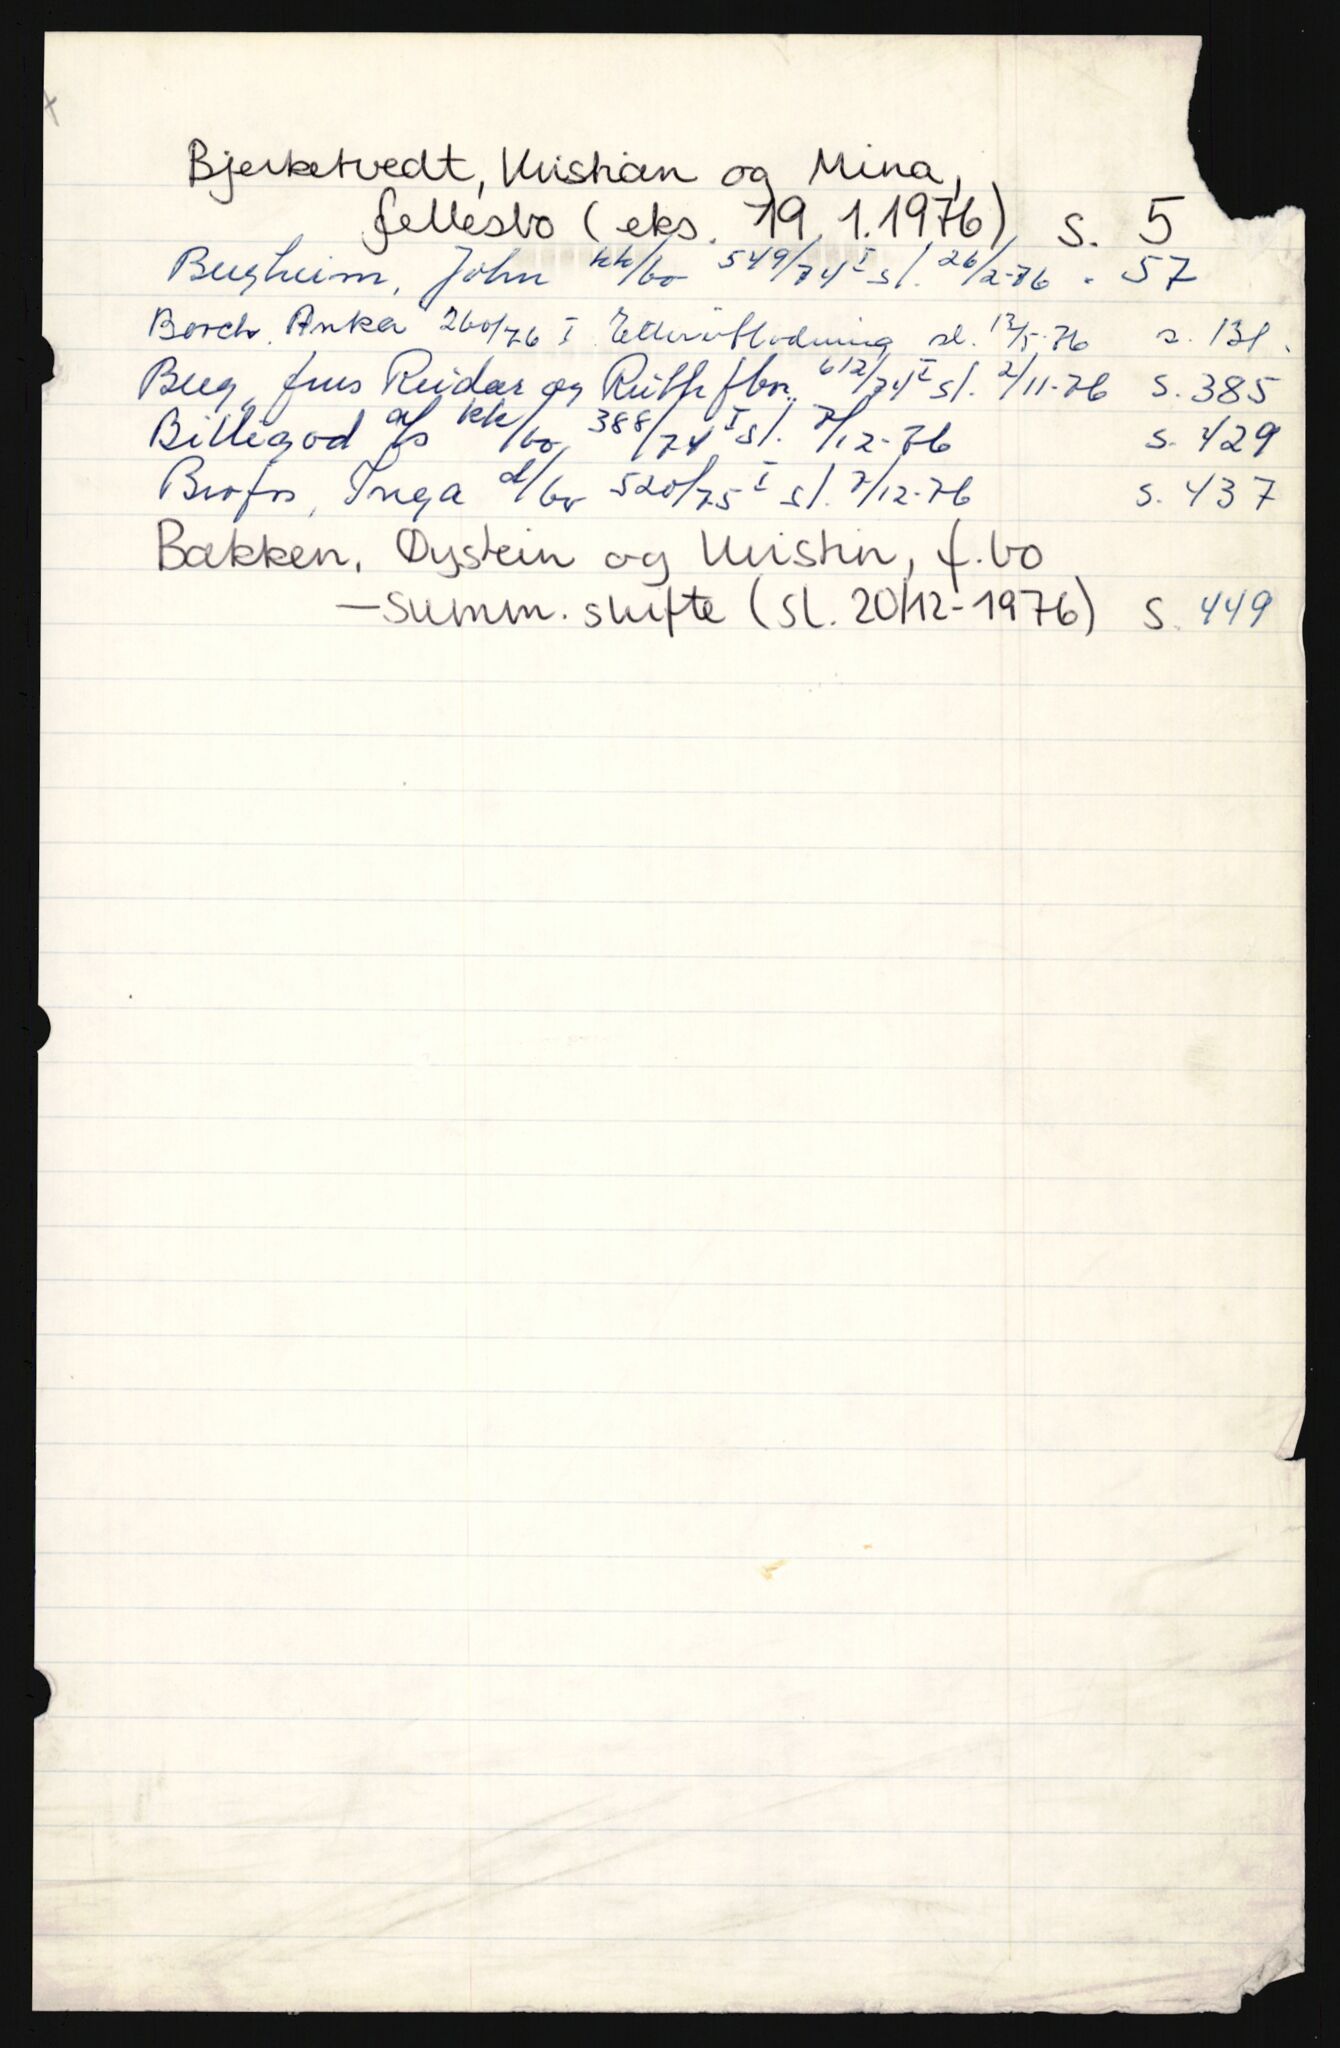 Bjerketvedt, Kristian og Mina,
fellesbo (eks. 19.1.1976) s. 5
Bergheim, John kk/bo 549/74 I sl. 26/2-76 - 57
Borch, Anka 260/76 I Etterutlodning sl. 13/5-76 s. 131.
Berg, Jens Reidar og Ruth fbo. 612/74 I sl. 2/11-76 s. 385
Billigod a/s kk/bo 388/74 I sl. 7/12-76 s. 429
Brofos, Inga d/bo 520/75 I sl. 7/12-76 s. 437
Bakken, Øystein og Kristin, f.bo
- summ. skifte (sl. 20/12-1976) s. 449